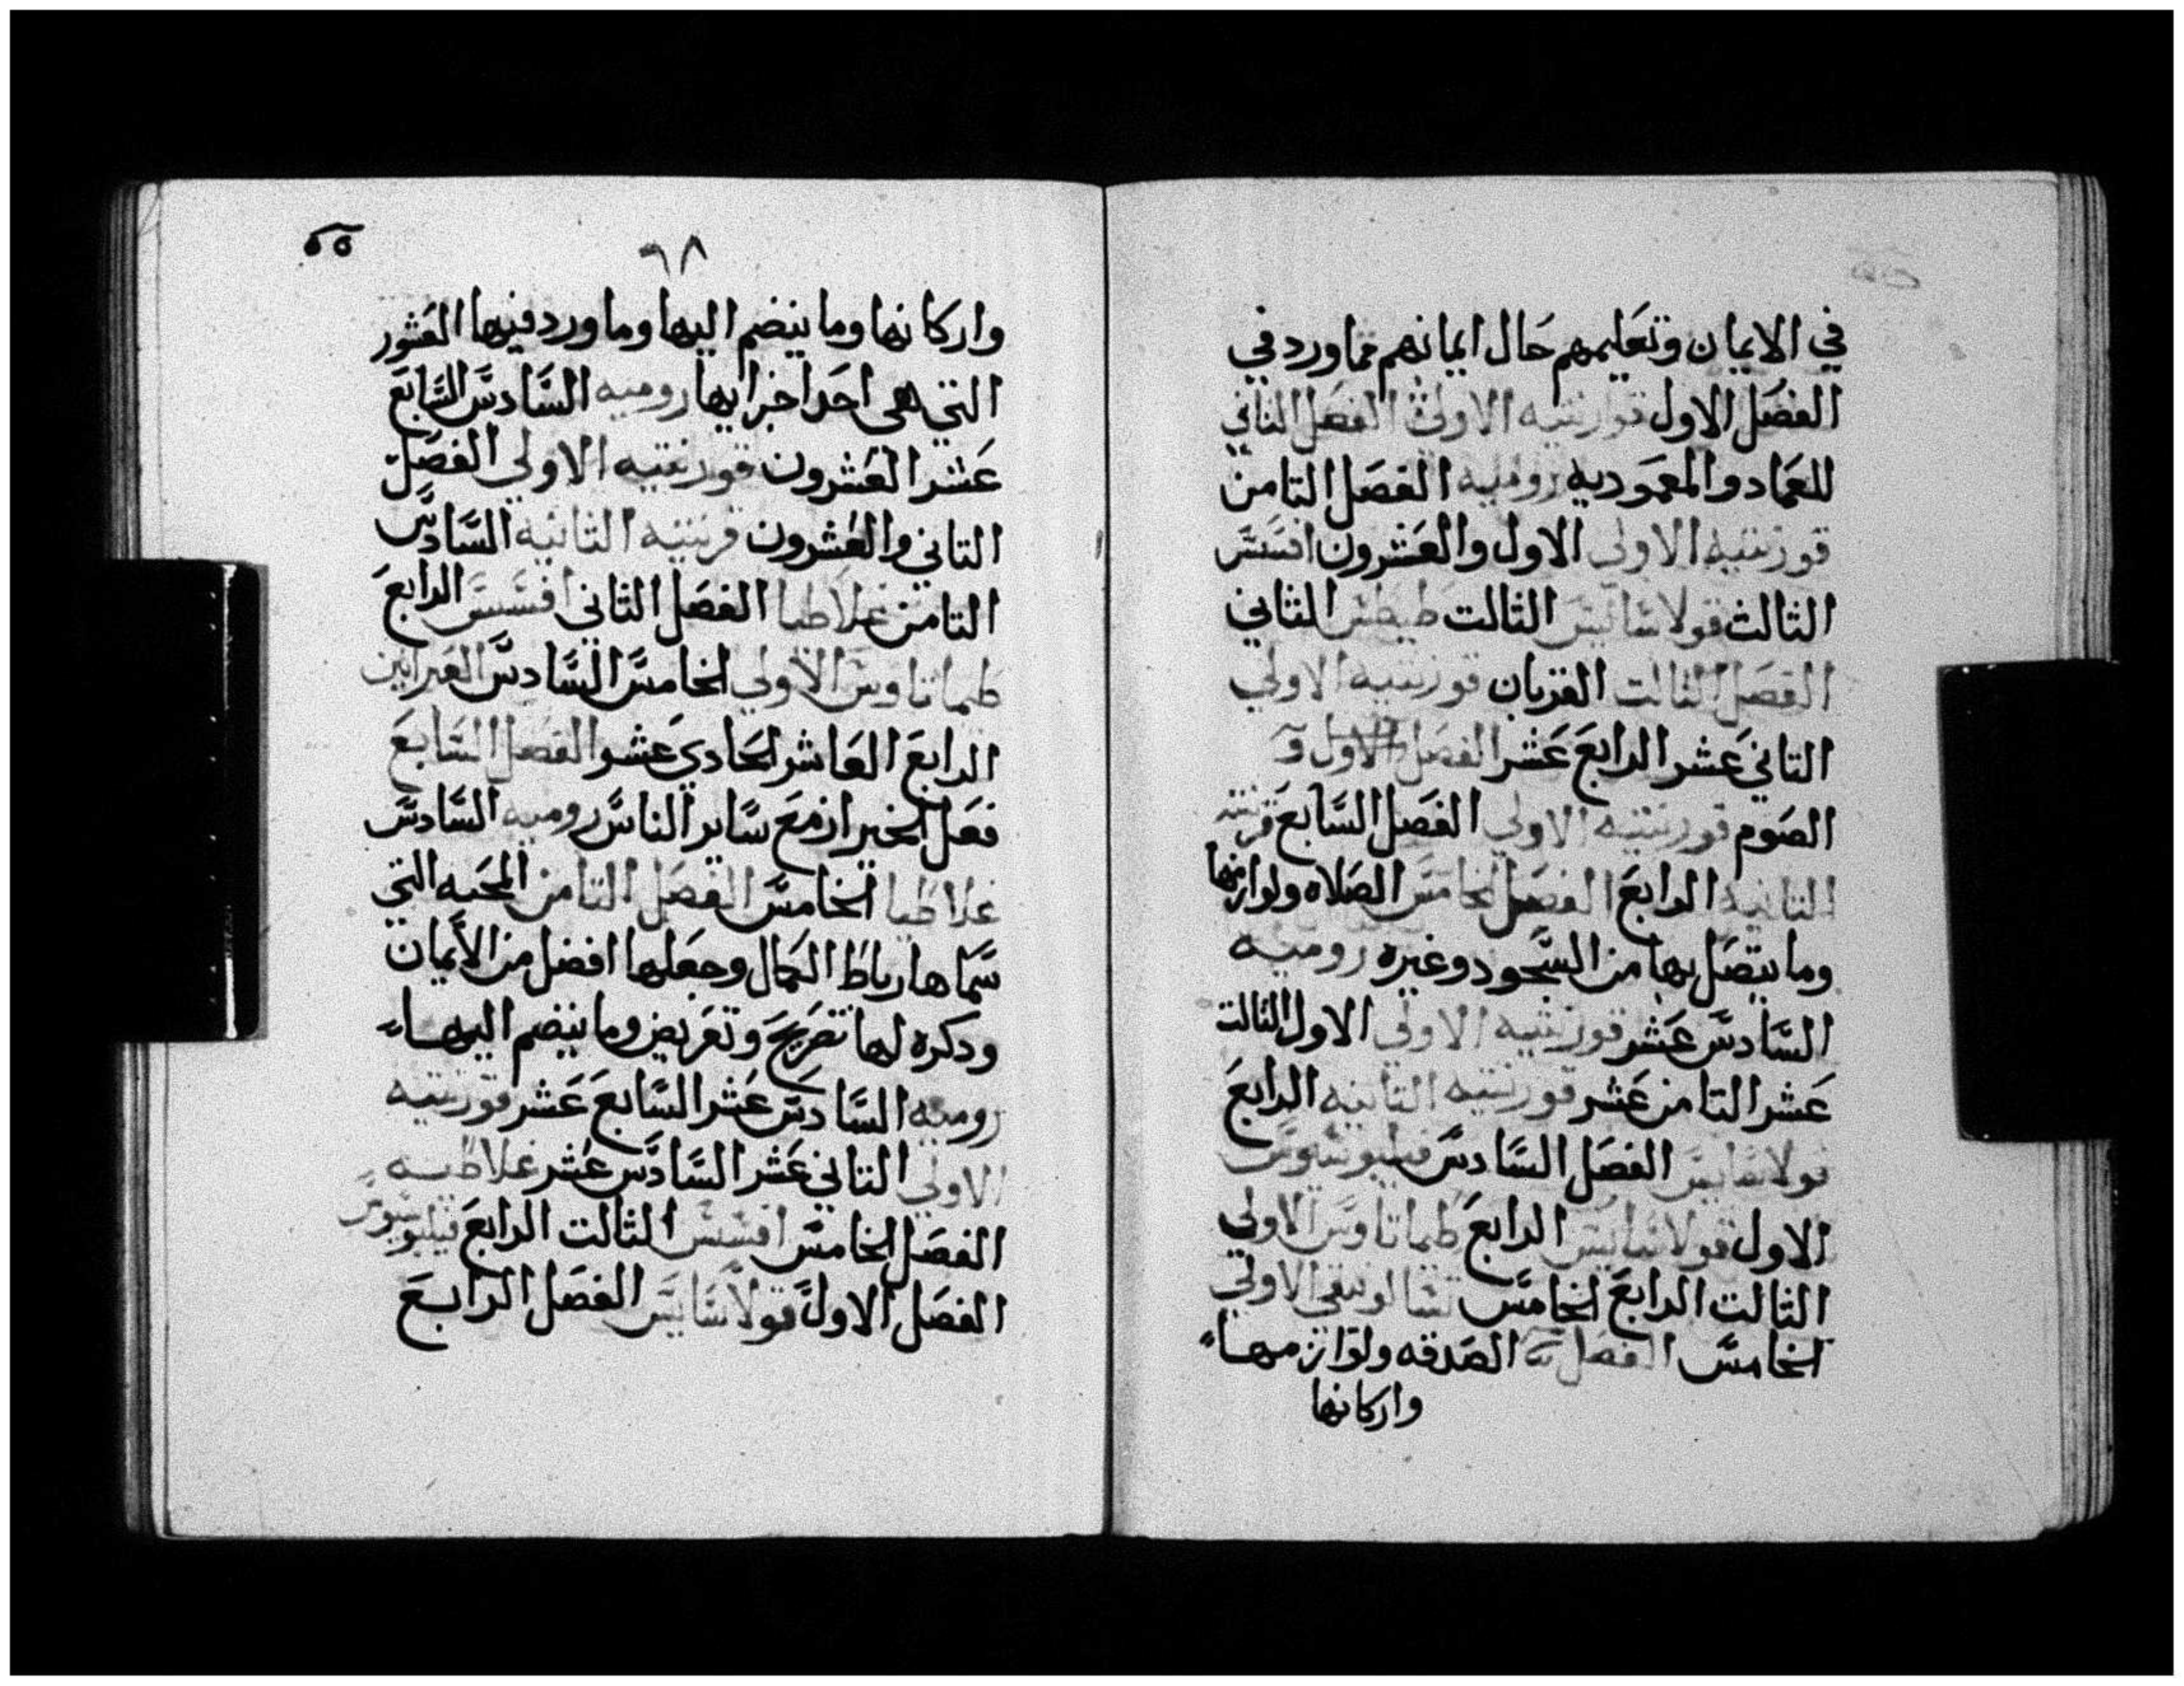 في الايمان وتعليمهم حال ايمانهم مما ورد في
الفصل الاول قورنتيه الاولى الفصل الثاني
للعماد والمعموديه روميه الفصل التامن
قورنتيه الاولى الاول والعشرون افسس
الثالث قولاسايس الثالت طيطس الثاني
الفصل الثالت القربان قورنتيه الاولي
التاني عشر الرابع عشر الفصل الاول
الصوم قورنتيه الاولي الفصل السابع قرنتيه
التانيه الرابع الفصل الخامس الصلاه ولوازمها
وما يتصل بها من السجود وغيره روميه
السادس عشر قورنتيه الاولى الاول الثالت
عشر التامن عشر قورنتيه التانيه الرابع
قولاسايس الفصل السادس فيلبوسيوس
الاول قولاسايس الرابع طيماتاوس الاولي
الثالت الرابع الخامس تسالونيقي الاولي
الخامس الفصل الصدقه ولوازمها
واركانها
٦٨
واركانها وما ينضم اليها وما ورد فيها العشور
التي هي احد اخزايها روميه السادس السابع
عشر العشرون قورنتيه الاولي الفصل
التاني والعشرون قرنتيه الثانيه السادس
التامن غلاطيا الفصل الثاني افسس الرابع
طيماتاوس الاولي الخامس السادس العبرانين
الرابع العاشر الحادي عشر الفصل السابع
فعل الخير ازمع ساير الناس روميه السادس
غلاطيا الخامس الفصل التامن المحبه التي
سماها رباط الكمال وجعلها افضل من الأيمان
ودكره لها تصريح وتعريض وما ينضم اليها
روميه السادس عشر السابع عشر قورنتيه
الاولي التاني عشر السادس عشر غلاطيه
الفصل الخامس افسس الثالت الرابع فيلبوسيوس
الفصل الاول قولاسايس الفصل الرابع